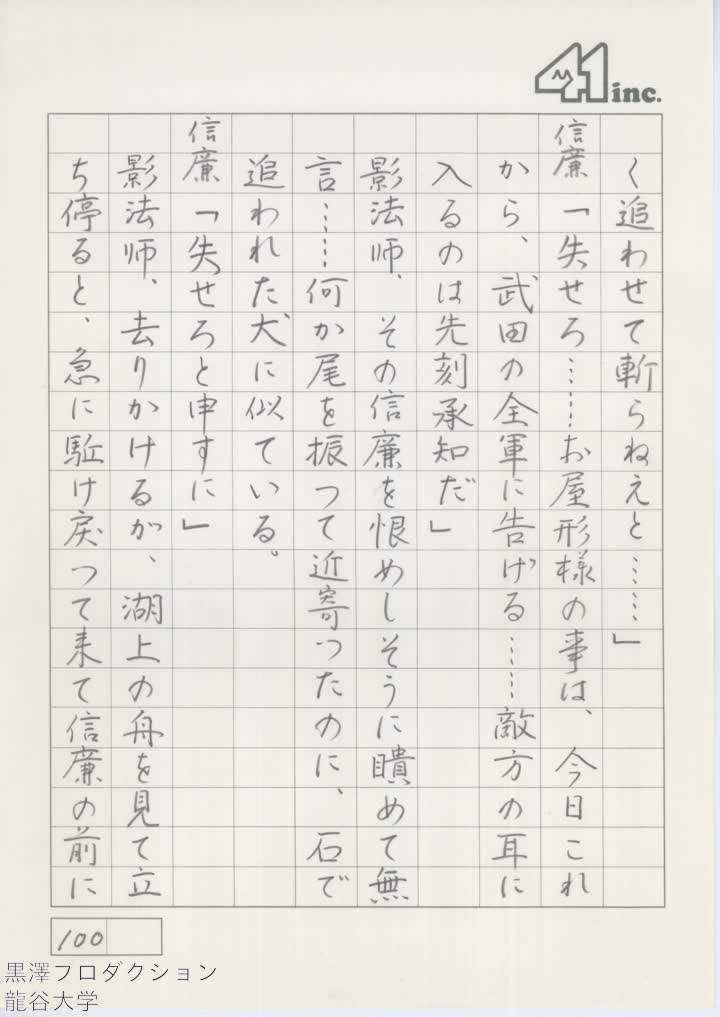 41 inc.
く追わせて斬らねえと……」
信廉「失せろ……お屋形様の事は、今日これ
から、武田の全軍に告げる……敵方の耳に
入るのは先刻承知だ」
影法師、その信廉を恨めしそうに瞶めて無
言……何か尾を振つて近寄ったのに、石で
追われた犬に似ている。
信廉「失せろと申すに」
影法師、去りかけるが、湖上の舟を見て立
ち停ると、急に駈け戻つて来て信廉の前に
100
黒澤プロダクション
龍谷大学